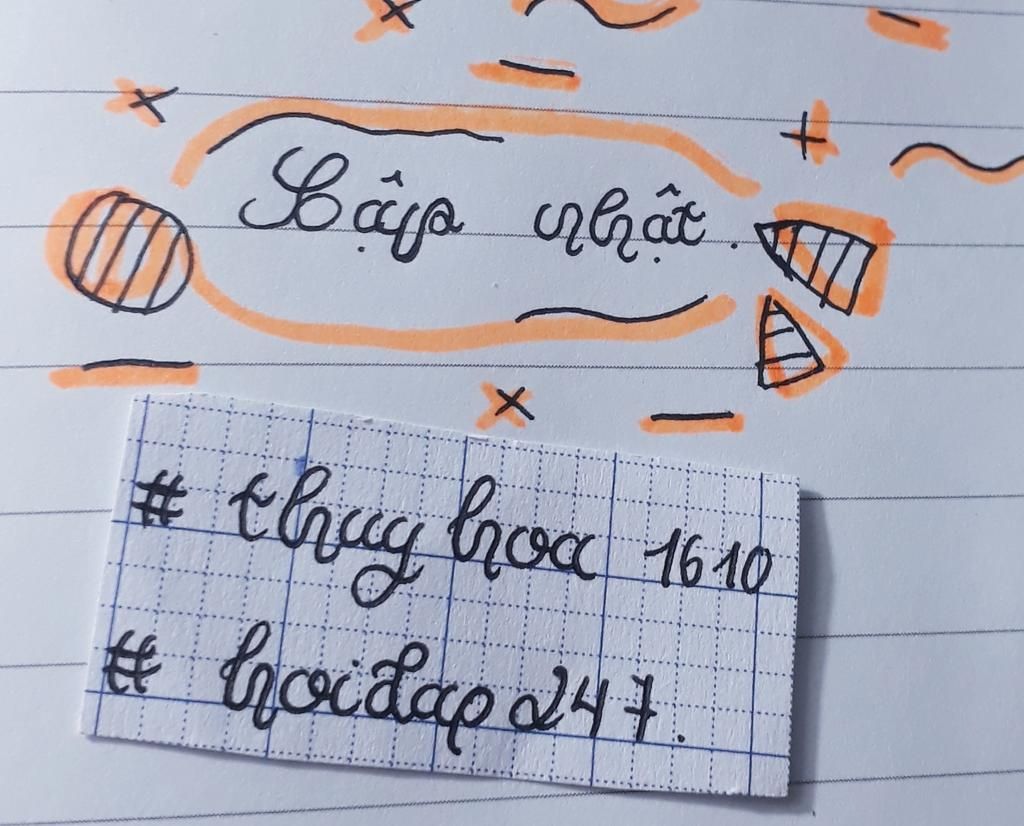 Cập nhật.
# thuy hoa 1610
# hoidap 247.